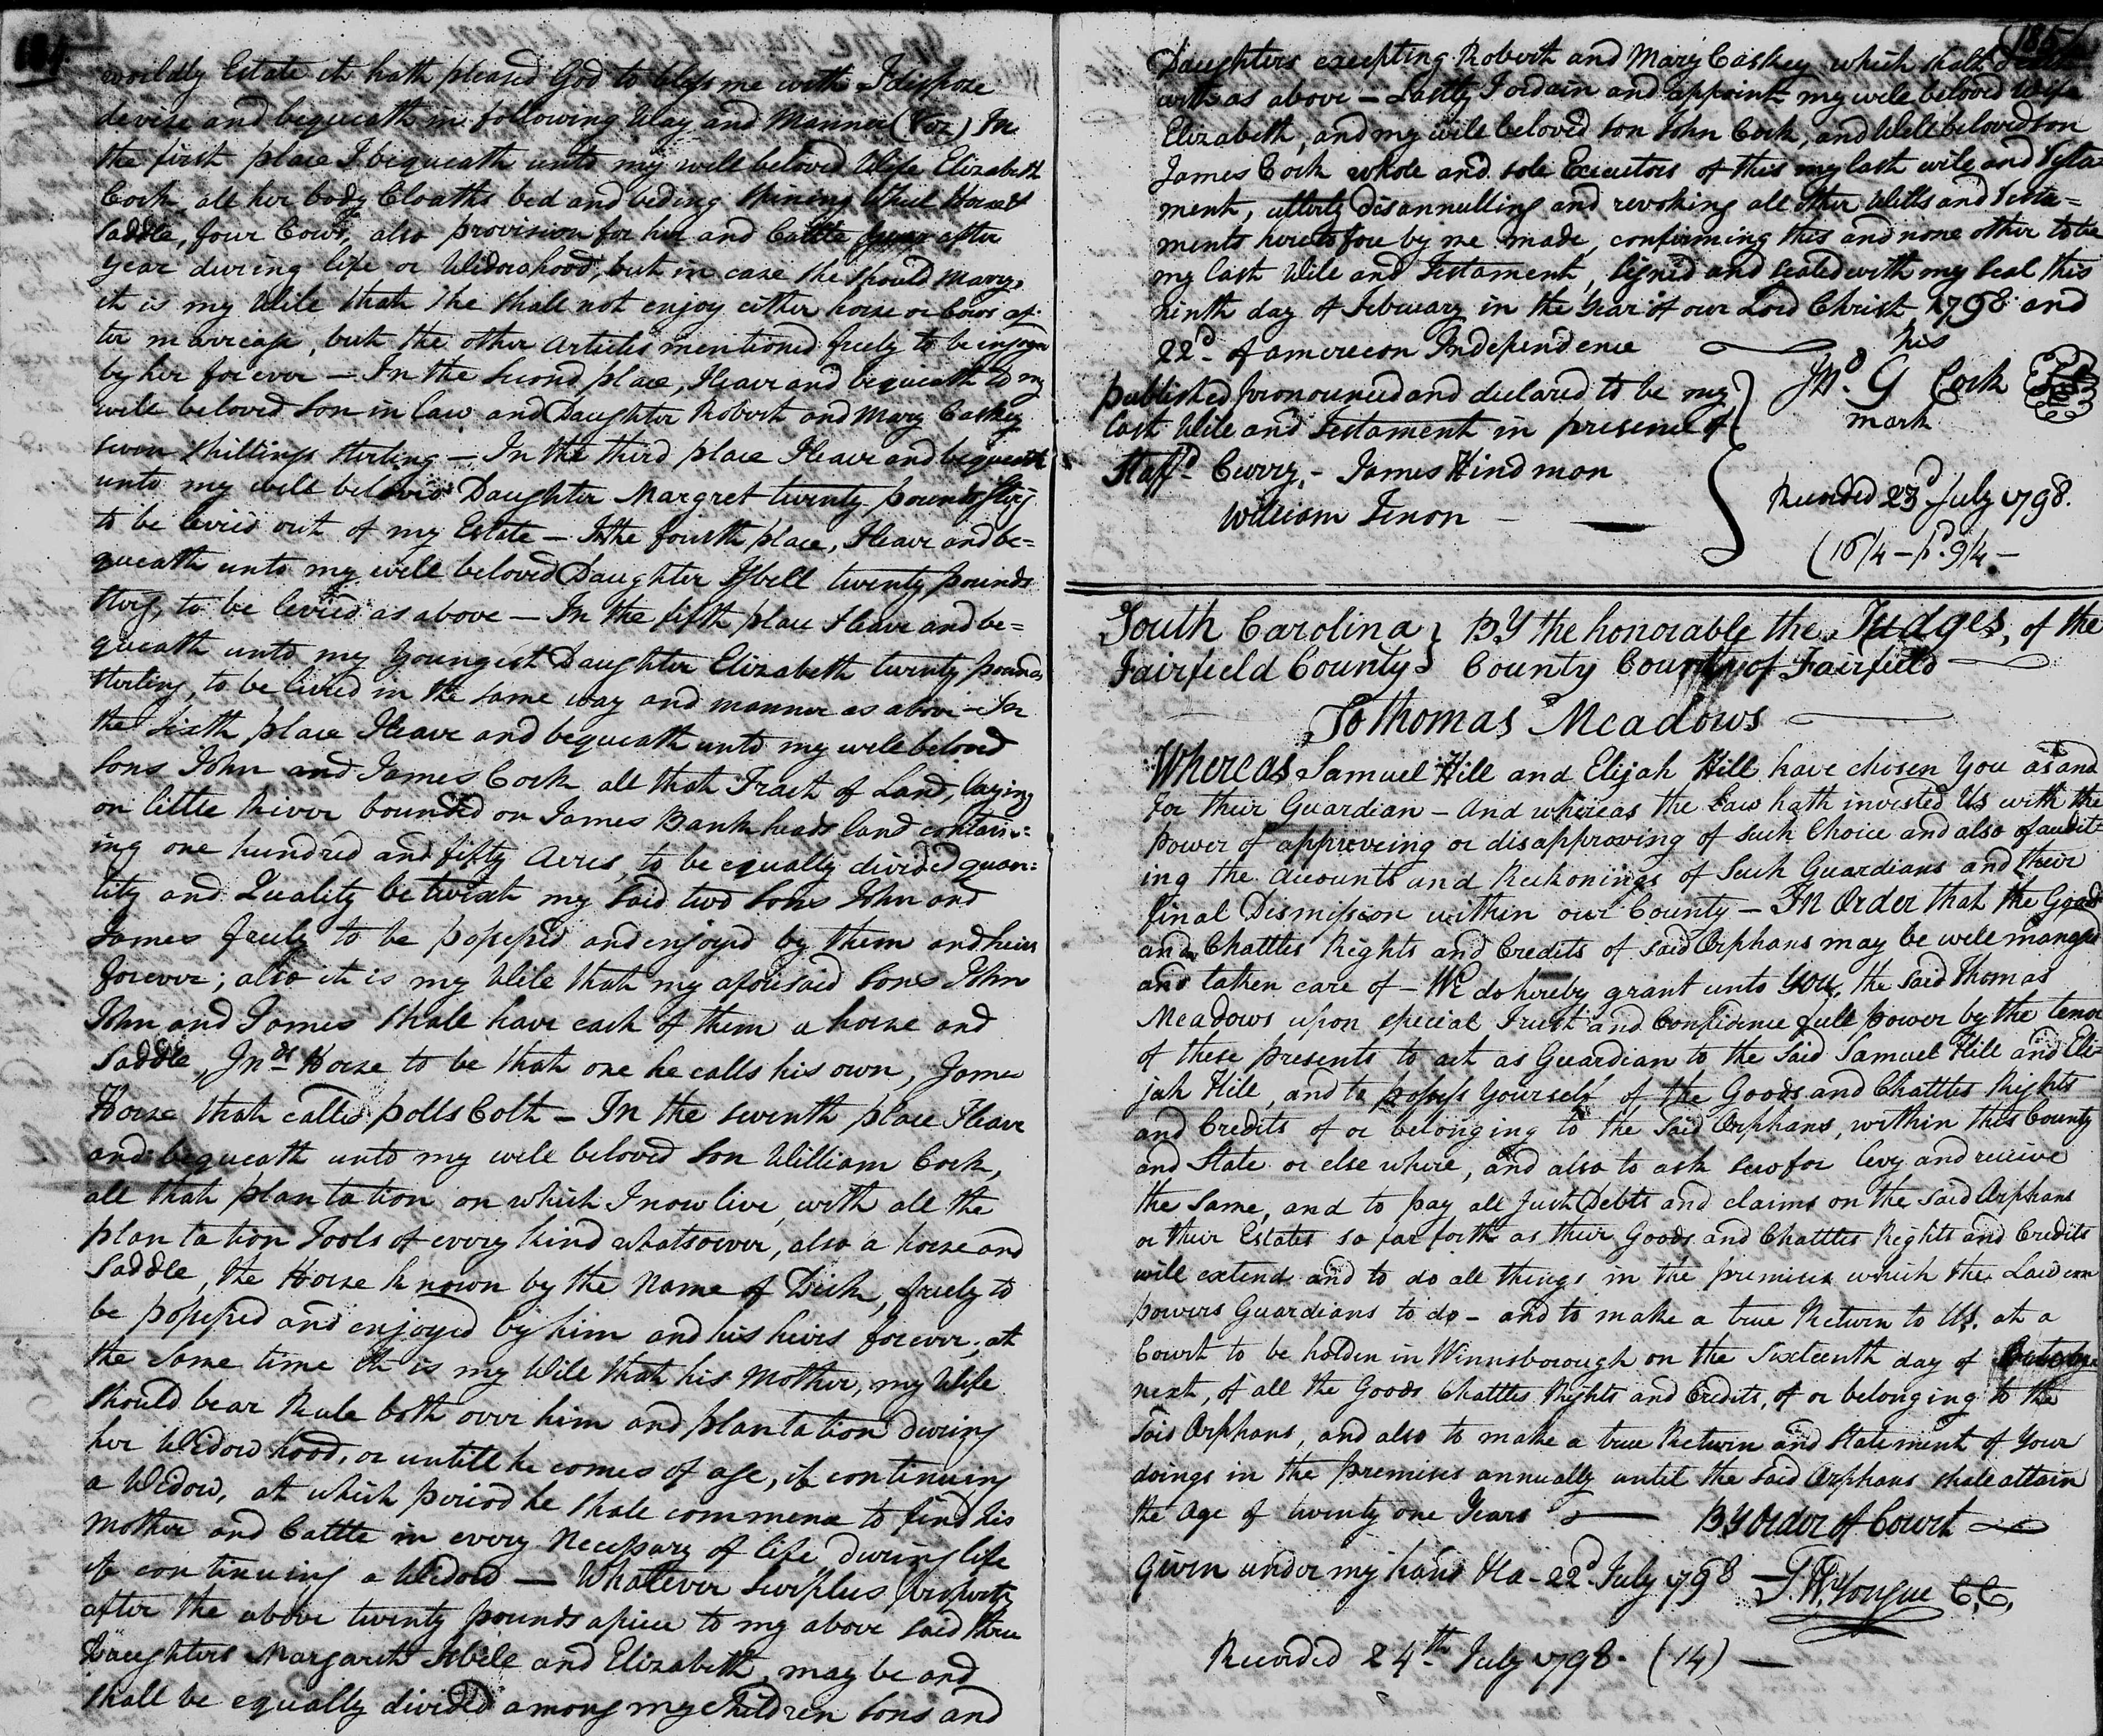 184.
worldly Estate it hath pleased God to bless me with I dispose
devise and bequeath in following Way and Manner (Viz) In
the first place I bequeath unto my well beloved Wife Elizabeth
Cork, all her body Cloaths bed and beding Spining Wheel Horse &
Saddle, four Cows, also provision for her and Cattle year after
year during life or Widowhood, but in case she should Marry,
it is my Will that she shall not enjoy either horse or Cows af-
ter marriage, but the other articles mentioned freely to be injoyd
by her forever — In the Second place, I leave and bequeath to my
well beloved Son in law and Daughter Robert and Mary Caskey
seven Shillings Sterling — In the third place I leave and bequeath
unto my well beloved Daughter Margret twenty pounds Sterg
to be levied out of my Estate — In the fourth place, I leave and be=
queath unto my well beloved Daughter Isbell twenty pounds
Sterg, to be levied as above — In the fifth place I leave and be=
queath unto my Youngest Daughter Elizabeth twenty pounds
Sterling, to be livied in the same way and manner as above — In
the Sixth place I leave and bequeath unto my well beloved
Sons John and James Cork all that Tract of Land, laying
on little River bounded on James Bankheads land contain=
ing one hundred and fifty Acres, to be equally divided quan=
tity and Quality betwixt my said two Sons John and
James freely to be possessed and enjoyed by them and heirs
forever; also it is my Will that my aforesaid Sons John
John and James shall have each of them a horse and
Saddle, Jnds Horse to be that one he calls his own, James
Horse that called polls Colt — In the seventh place I leave
and bequeath unto my well beloved Son William Cork,
all that plantation on which I now live, with all the
plantation Tools of every kind whatsoever, also a horse and
Saddle, the Horse known by the Name of Dick, freely to
be possessed and enjoyed by him and his heirs forever, at
the same time it is my Will that his Mother, my Wife
should bear Rule both over him and plantation during
her Widowhood, or untill he comes of age, if continuing
a Widow, at which period he shall commence to find his
Mother and Cattle in every Necessary of life during life
if continuing a Widow — Whatever Surplus property
after the above twenty pounds apiece to my above said three
Daughters Margaret Isbele and Elizabeth, may be and
shall be equally divided among my Children Sons and
185
Daughters excepting Robert and Mary Caskey which shall
with as above — Lastly I ordain and appoint my well beloved Wife
Elizabeth, and my well beloved son John Cork, and Well beloved son
James Cork whole and sole Executors of this my last will and Testa=
ment, utterly disannulling and revoking all other Wills and Testa=
ments heretofore by me made, confirming this and none other to be
my last Will and Testament, Signed and Sealed with my Seal this
ninth day of February in the Year of our Lord Christ 1798 and
22d of american Independence
his
Jno. G Cork
mark
published pronounced and declared to be my
last Will and Testament in presence of
Staffd Curry, — James Hindmon
William Tinon
Recorded 23d July 1798.
(16/4 — pd. 9/4 —
South Carolina } BY the honorable the Judges, of the
Fairfield County } County Court of Fairfield
To Thomas Meadows
Whereas Samuel Hill and Elijah Hill have chosen You as and
for their Guardian — And whereas the Law hath invested Us with the
power of approveing or disapproving of such Choice and also of audit=
ing the Accounts and Reckonings of Such Guardians and their
final Dismission within our County — In Order that the Goods
and Chattles Rights and Credits of said Orphans may be well manged
and taken care of — We do hereby grant unto You, the said Thomas
Meadows upon special Trust and Confidence full power by the tenor
of these presents to act as Guardian to the said Samuel Hill and Eli=
jah Hill, and to possess Yourself of the Goods and Chattles Rights
and Credits of or belonging to the said Orphans, within this County
and State or else where, and also to ask sue for levy and recieve
the same, and to pay all Just Debts and claims on the said Orphans
or their Estates so far forth as their Goods and Chattles Rights and Credits
will extend and to do all things in the premises which the Law em
powers Guardians to do — and to make a true Return to Us. at a
Court to be holden in Winnsborough on the Sixteenth day of
next, of all the Goods Chattles Rights and Credits, of or belonging to the
Said Orphans, and also to make a true Return and Statement of Your
doings in the premises annually until the said Orphans shall attain
the Age of twenty one Years — BY order of Court
Given under my hand this 22d July 1798 — S. W. Yongue C,C,
Recorded 24th July 1798. (14) —